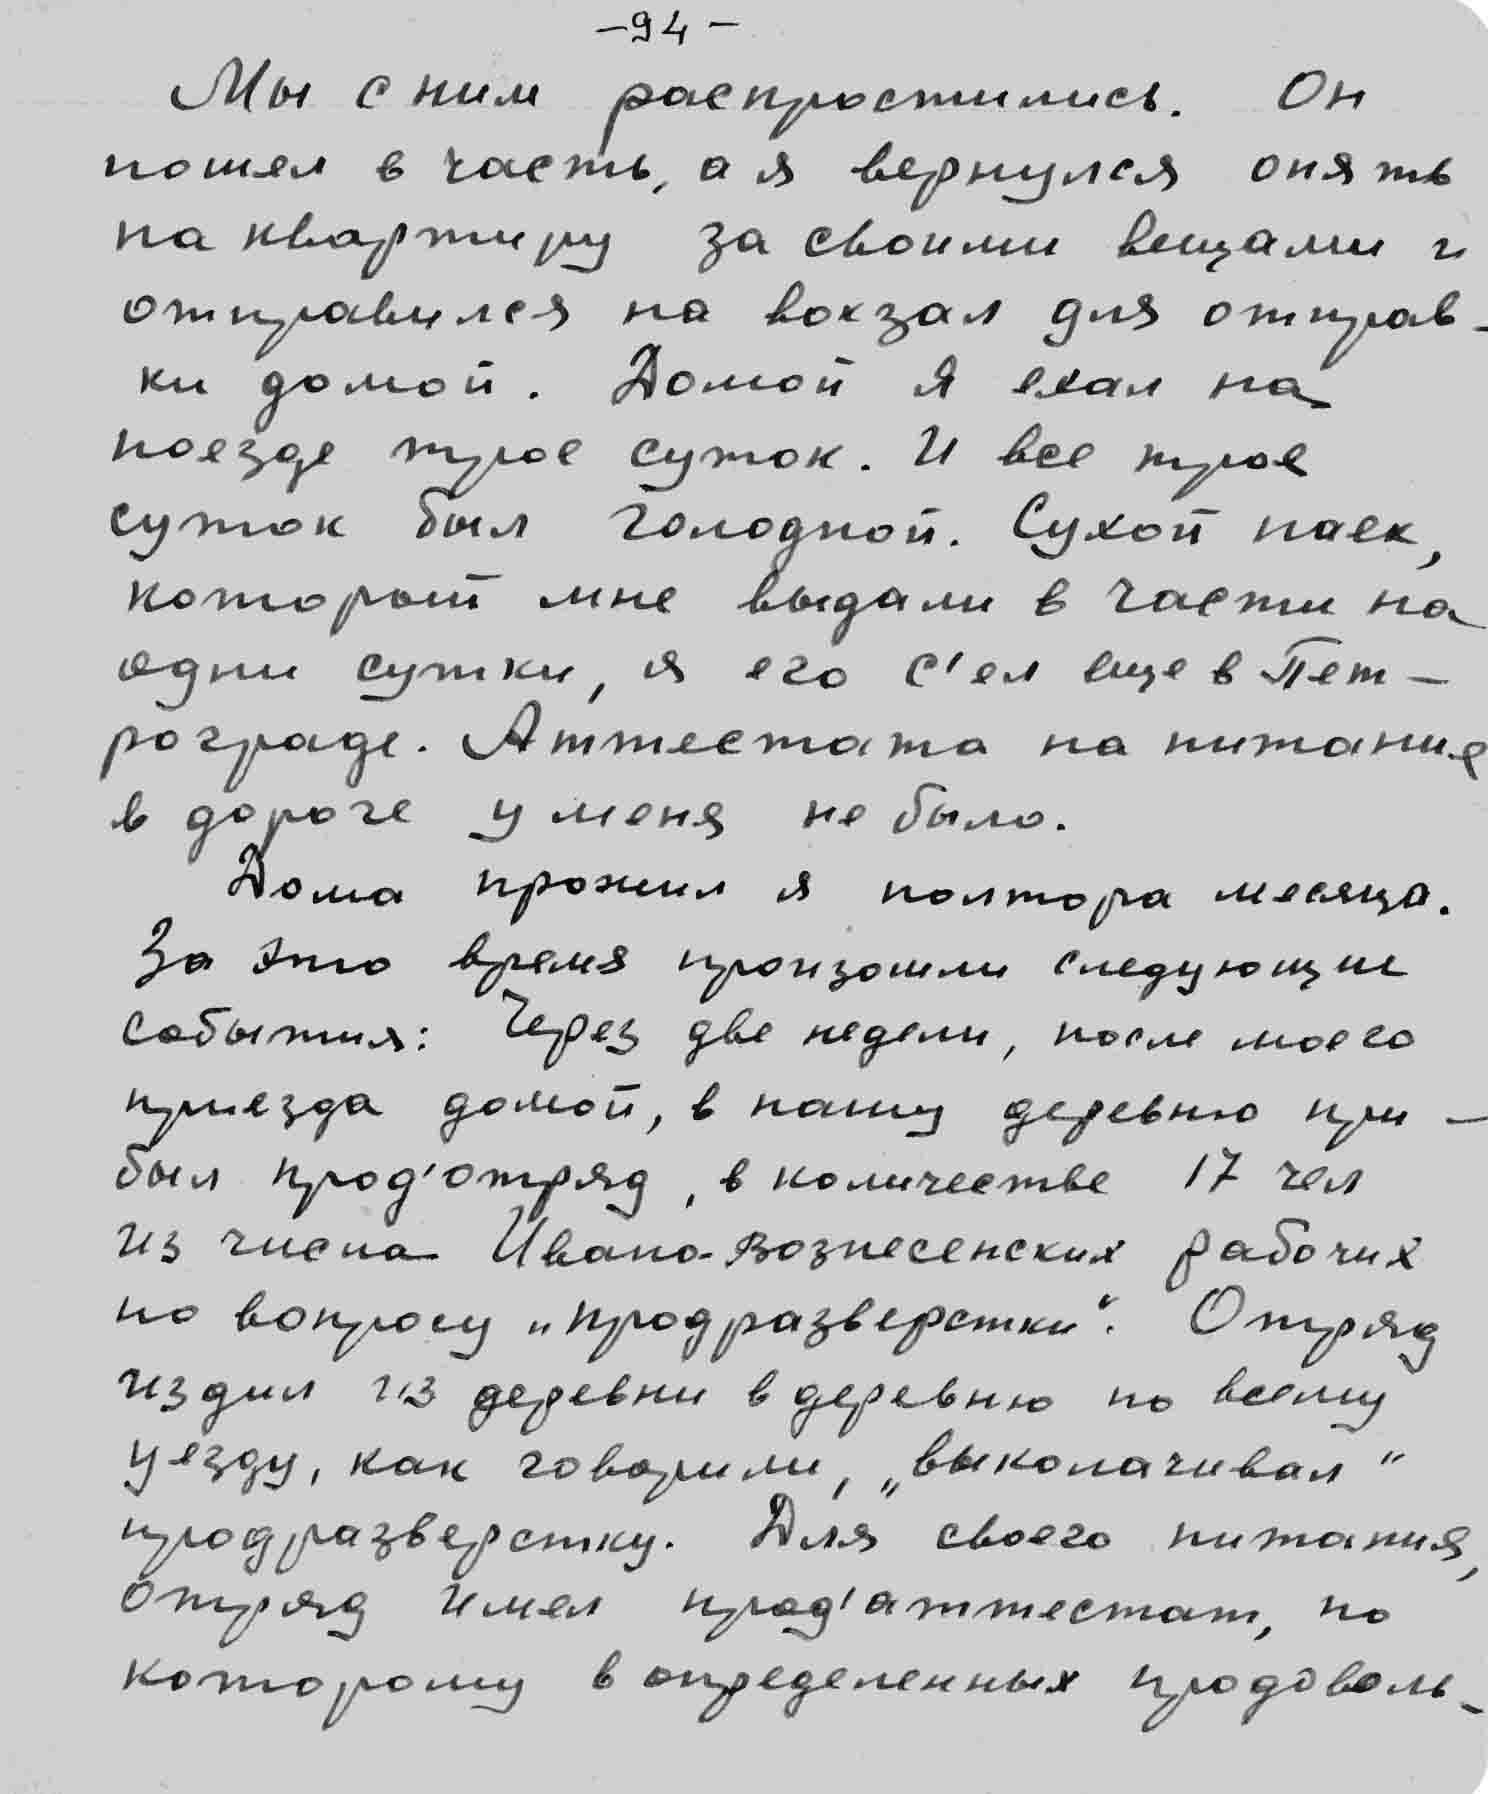 -94-
Мы с ним распростились. Он
пошел в часть, а я вернулся опять
на квартиру за своими вещами и
отправился на вокзал для отправ-
ки домой. Домой я ехал на
поезде трое суток. И все трое
суток был голодной. Сухой паек,
который мне выдали в части на
одни сутки, я его с'ел еще в Пет-
рограде. Аттестата на питание
в дороге у меня не было.
Дома прожил я полтора месяца.
За это время произошли следующие
события: Через две недели, после моего
приезда домой, в нашу деревню при-
был прод'отряд, в количестве 17 чел
из числа Ивано-Вознесенских рабочих
по вопросу „продразверстки“. Отряд
издил из деревни в деревню по всему
уезду, как говорили, „выколачивал“
продразверстку. Для своего питания,
отряд имел прод'аттестат, по
которому в определенных продоволь-